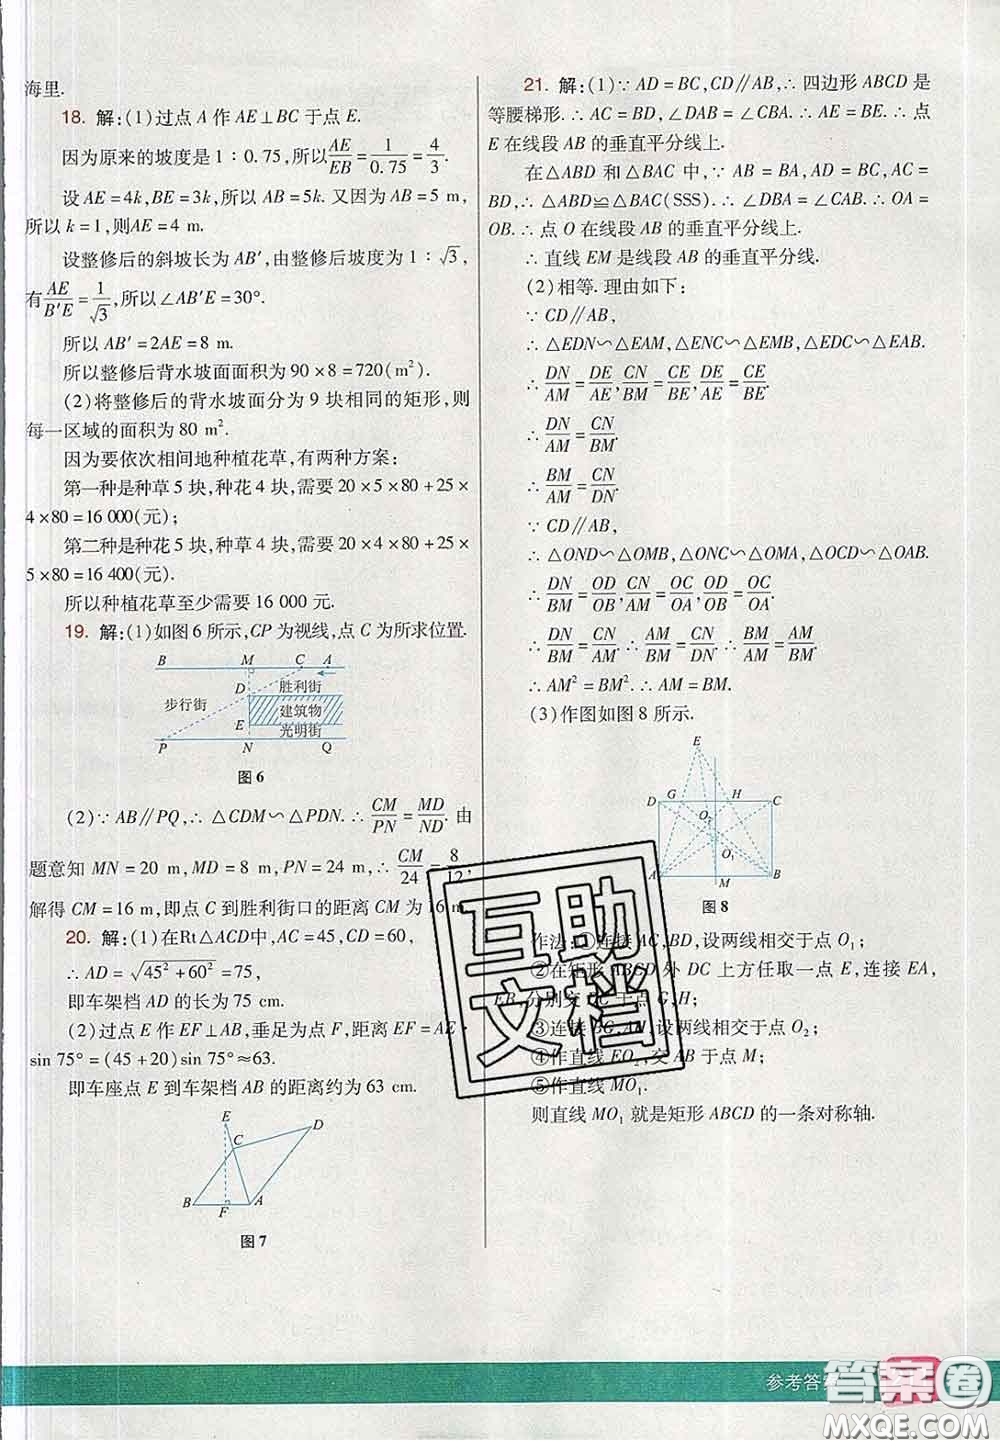 海里.
18. 解:(1)过点 A 作 AE⊥BC 于点 E.
因为原来的坡度是 1∶0.75,所以AE/EB=1/0.75=4/3.
设 AE=4k,BE=3k,所以 AB=5k. 又因为 AB=5 m,
所以 k=1,则AE=4 m.
设整修后的斜坡长为 AB′,由整修后坡度为 1∶√3,
有AE/B′E=1/√3,所以∠AB′E=30°.
所以 AB′=2AE=8 m.
所以整修后背水坡面面积为 90×8=720(m²).
(2)将整修后的背水坡面分为 9 块相同的矩形,则
每一区域的面积为 80 m².
因为要依次相间地种植花草,有两种方案:
第一种是种草 5 块,种花 4 块,需要 20×5×80+25×
4×80=16 000(元);
第二种是种花 5 块,种草 4 块,需要 20×4×80+25×
5×80=16 400(元).
所以种植花草至少需要 16 000 元.
19. 解:(1)如图 6 所示,CP 为视线,点 C 为所求位置.
B M C A
D 胜利街
步行街 建筑物
E 光明街
P N Q
图 6
(2)∵AB∥PQ,∴△CDM∽△PDN.∴CM/PN=MD/ND. 由
题意知 MN=20 m,MD=8 m,PN=24 m,∴CM/24=8/12,
解得 CM=16 m,即点 C 到胜利街口的距离 CM 为 16 m.
20. 解:(1)在Rt△ACD中,AC=45,CD=60,
∴AD=√(45²+60²)=75,
即车架档 AD 的长为 75 cm.
(2)过点 E 作 EF⊥AB,垂足为点 F,距离 EF=AE·
sin 75°=(45+20)sin 75°≈63.
即车座点 E 到车架档 AB 的距离约为 63 cm.
E
D
C
B F A
图 7
21. 解:(1)∵AD=BC,CD∥AB,∴四边形 ABCD 是
等腰梯形.∴AC=BD,∠DAB=∠CBA.∴AE=BE.∴点
E 在线段 AB 的垂直平分线上.
在△ABD 和△BAC 中,∵AB=BA,AD=BC,AC=
BD,∴△ABD≌△BAC(SSS).∴∠DBA=∠CAB.∴OA=
OB.∴点 O 在线段 AB 的垂直平分线上.
∴直线 EM 是线段 AB 的垂直平分线.
(2)相等. 理由如下:
∵CD∥AB,
∴△EDN∽△EAM,△ENC∽△EMB,△EDC∽△EAB.
∴DN/AM=DE/AE,CN/BM=CE/BE,DE/AE=CE/BE.
∴DN/AM=CN/BM.
∴BM/AM=CN/DN.
∵CD∥AB,
∴△OND∽△OMB,△ONC∽△OMA,△OCD∽△OAB.
∴DN/BM=OD/OB,CN/AM=OC/OA,OD/OB=OC/OA.
∴DN/BM=CN/AM.∴AM/BM=CN/DN.∴BM/AM=AM/BM.
∴AM²=BM².∴AM=BM.
(3)作图如图 8 所示.
E
D G H C
O₂
O₁
A M B
图 8
作法:①连接 AC,BD,设两线相交于点 O₁;
②在矩形 ABCD 外 DC 上方任取一点 E,连接 EA,
EB,分别交 DC 于点 G,H;
③连接 BG,AH,设两线相交于点 O₂;
④作直线 EO₂,交 AB于点 M;
⑤作直线 MO₁.
则直线 MO₁ 就是矩形 ABCD 的一条对称轴.
互助
文档
参考答案
答案圈
MXQE.COM